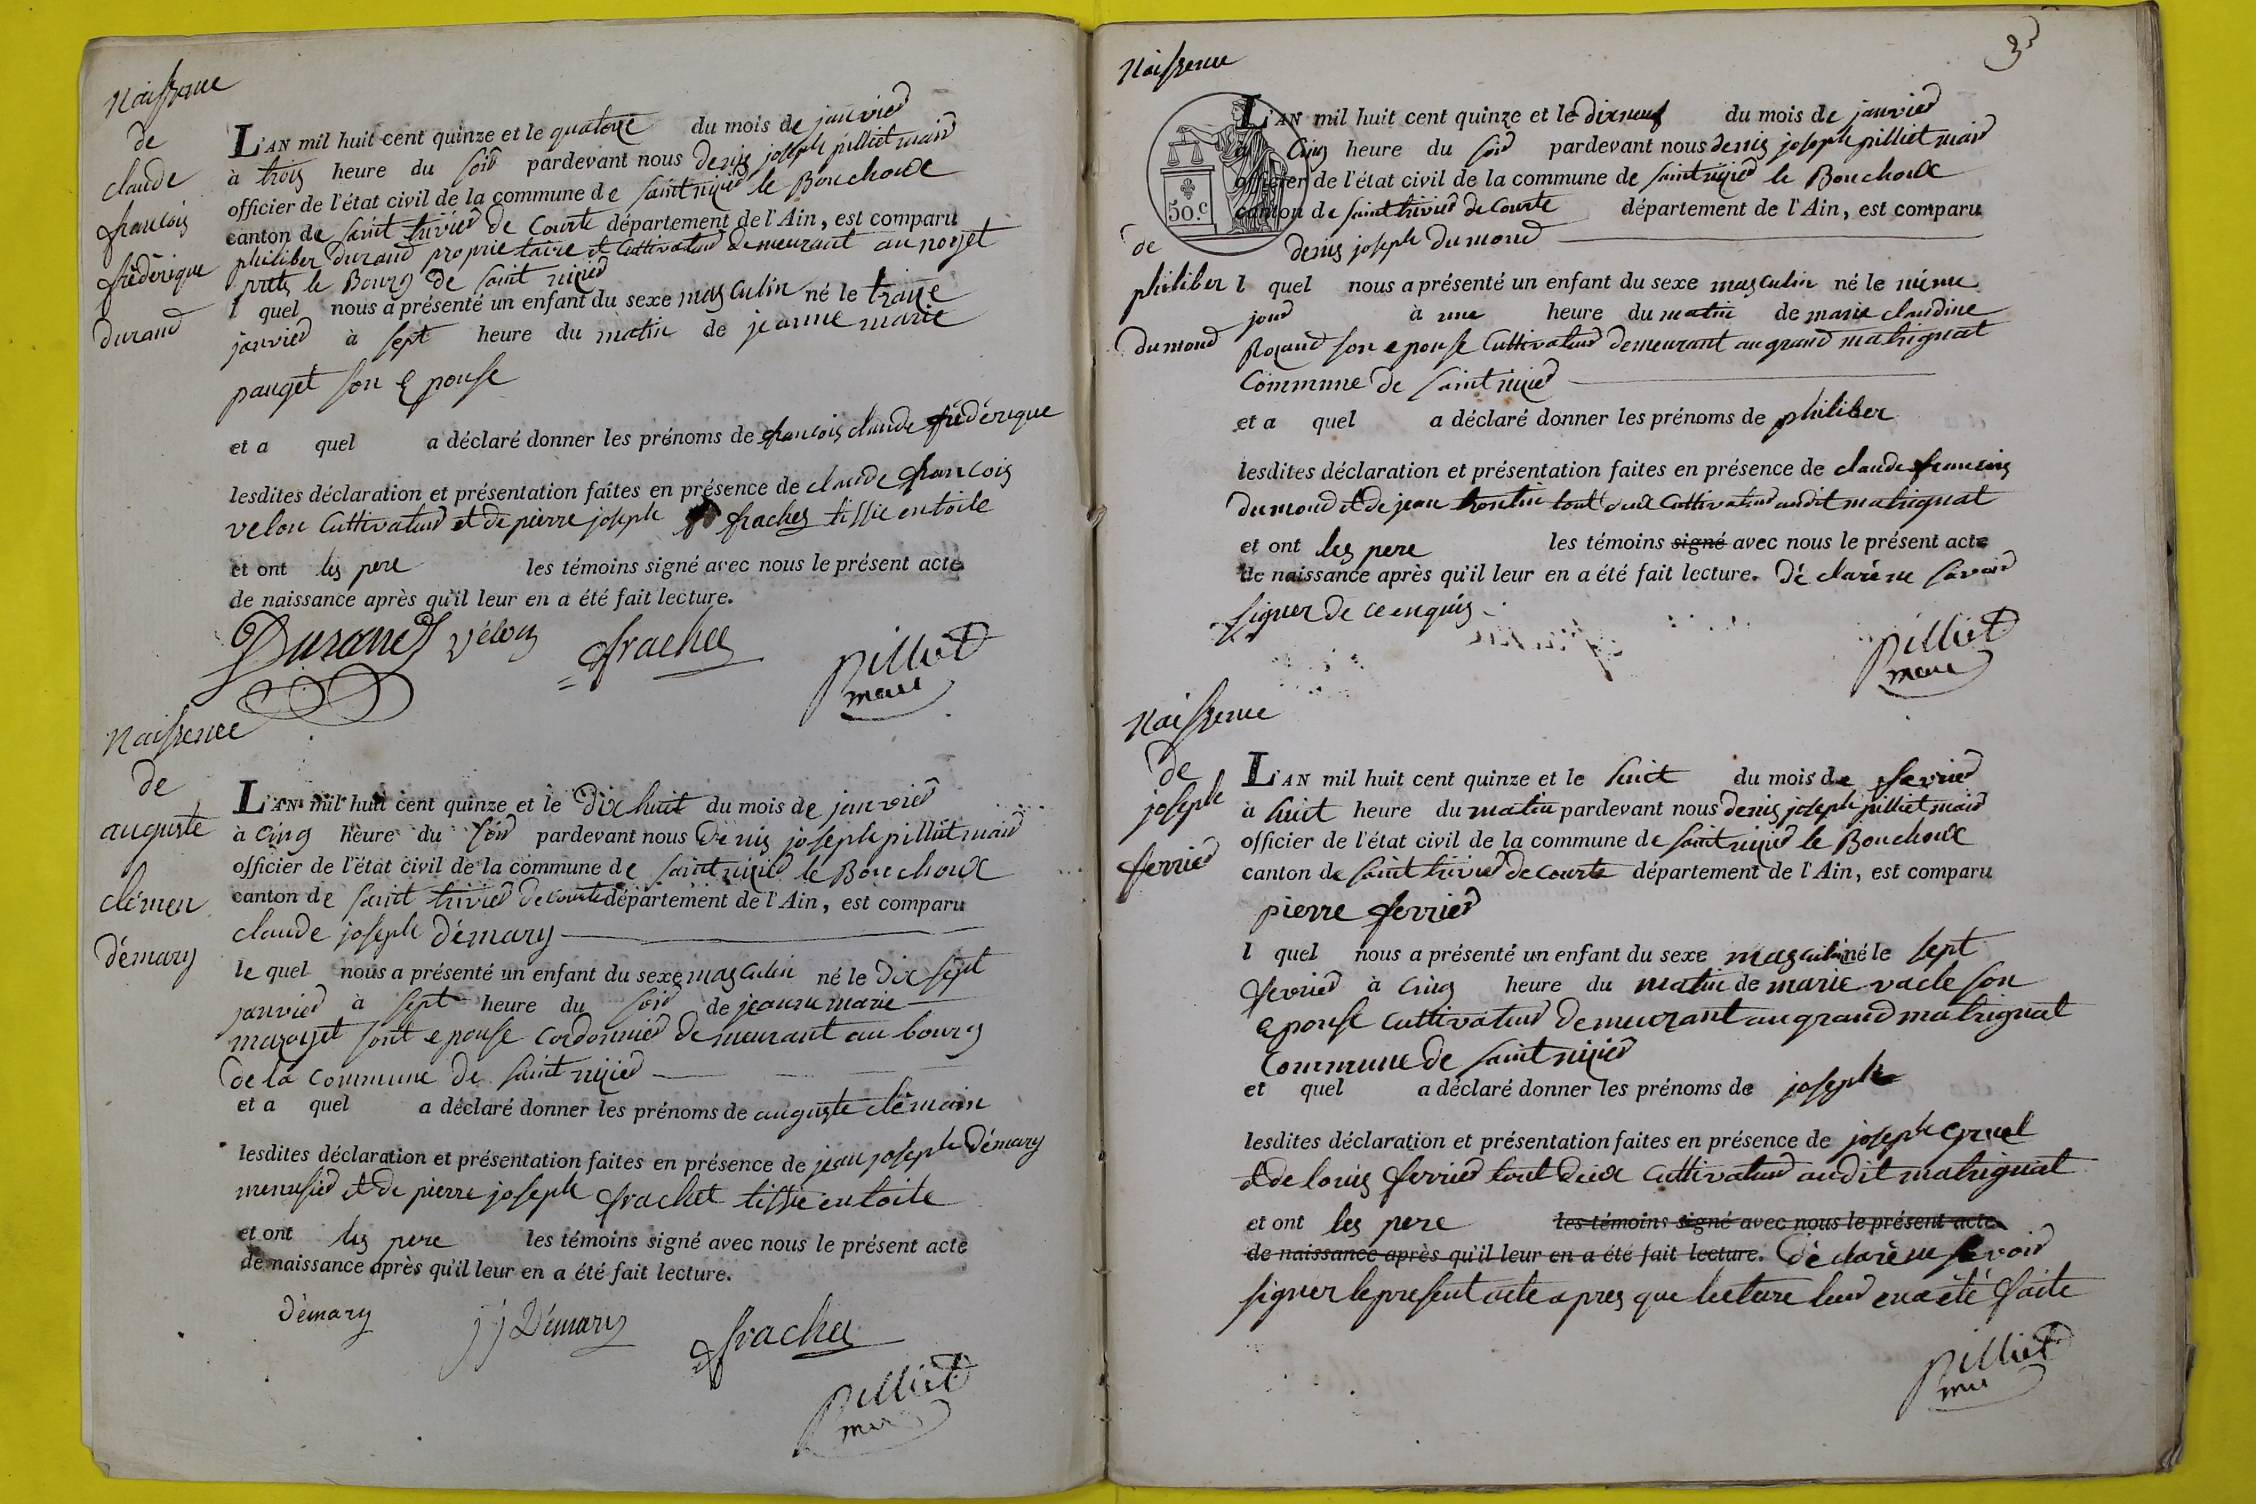 Naissance
de
claude
francois
frédérique
durand
L'AN mil huit cent quinze et le quatorze du mois de janvier
à trois heure du soir pardevant nous denis joseph pilliet maire
officier de l'état civil de la commune de saint nizier le Bouchoux
canton de saint trivier de Courte département de l'Ain, est comparu
philiber durand proprietaire et Cultivateur demeurant au
le Bourg de saint nizier
l quel nous a présenté un enfant du sexe masculin né le traize
janvier à sept heure du matin de jeanne marie
pauget son Epouse
et a quel a déclaré donner les prénoms de francois claude frédérique
lesdites déclaration et présentation faites en présence de claude francois
velon Cultivateur et de pierre joseph frachet tissie en toile
et ont les pere les témoins signé avec nous le présent acte
de naissance après qu'il leur en a été fait lecture.
Durand vélon frachet
Pilliet
maire
Naissence
de
auguste
clémen
démary
L'AN mil huit cent quinze et le dix huit du mois de janvier
à cinq heure du soir pardevant nous Denis joseph pilliet maire
officier de l'état civil de la commune de saint nizier le Bouchoux
canton de saint trivier de courte département de l'Ain, est comparu
claude joseph démary
le quel nous a présenté un enfant du sexe masculin né le dix sept
janvier à sept heure du soir de jeanne marie
sont epouse cordonnier demeurant au bourg
de la commune de saint nizier
et a quel a déclaré donner les prénoms de auguste clémain
lesdites déclaration et présentation faites en présence de jean joseph démary
menusier et de pierre joseph frachet tissie en toile
et ont les pere les témoins signé avec nous le présent acte
de naissance après qu'il leur en a été fait lecture.
Démary jj Démary frachet
Pilliet
3
Naissence
de
philiber
dumond
50.c
L'AN mil huit cent quinze et le dix neuf du mois de janvier
à Cinq heure du soir pardevant nous denis joseph pilliet maire
officier de l'état civil de la commune de saint nizier le Bouchoux
canton de saint trivier de Courte département de l'Ain, est comparu
denis joseph dumond
l quel nous a présenté un enfant du sexe masculin né le même
jour à une heure du matin de marie claudine
son epouse Cultivateur demeurant au grand matrignat
Commune de saint nizier
et a quel a déclaré donner les prénoms de philiber
lesdites déclaration et présentation faites en présence de claude francois
dumond et de jean tout deux Cultivateur au dit matrignat
et ont les pere les témoins signé avec nous le présent acte
de naissance après qu'il leur en a été fait lecture. déclaré ne savoir
signer de ce enquis
Pilliet
maire
Naissence
de
joseph
ferrier
L'AN mil huit cent quinze et le huit du mois de fevrier
à huit heure du matin pardevant nous denis joseph pilliet maire
officier de l'état civil de la commune de saint nizier le Bouchoux
canton de saint trivier de courte département de l'Ain, est comparu
pierre ferrier
l quel nous a présenté un enfant du sexe masculin né le sept
fevrier à cinq heure du matin de marie vacle son
Epouse cultivateur demeurant au grand matrignat
Commune de saint nizier
et quel a déclaré donner les prénoms de joseph
lesdites déclaration et présentation faites en présence de joseph
et de louis ferrier tout deux cultivateur au dit matrignat
et ont les pere les témoins signé avec nous le présent acte
de naissance après qu'il leur en a été fait lecture. déclaré ne savoir
signer le present acte apres que lecture leur en a été faite
Pilliet